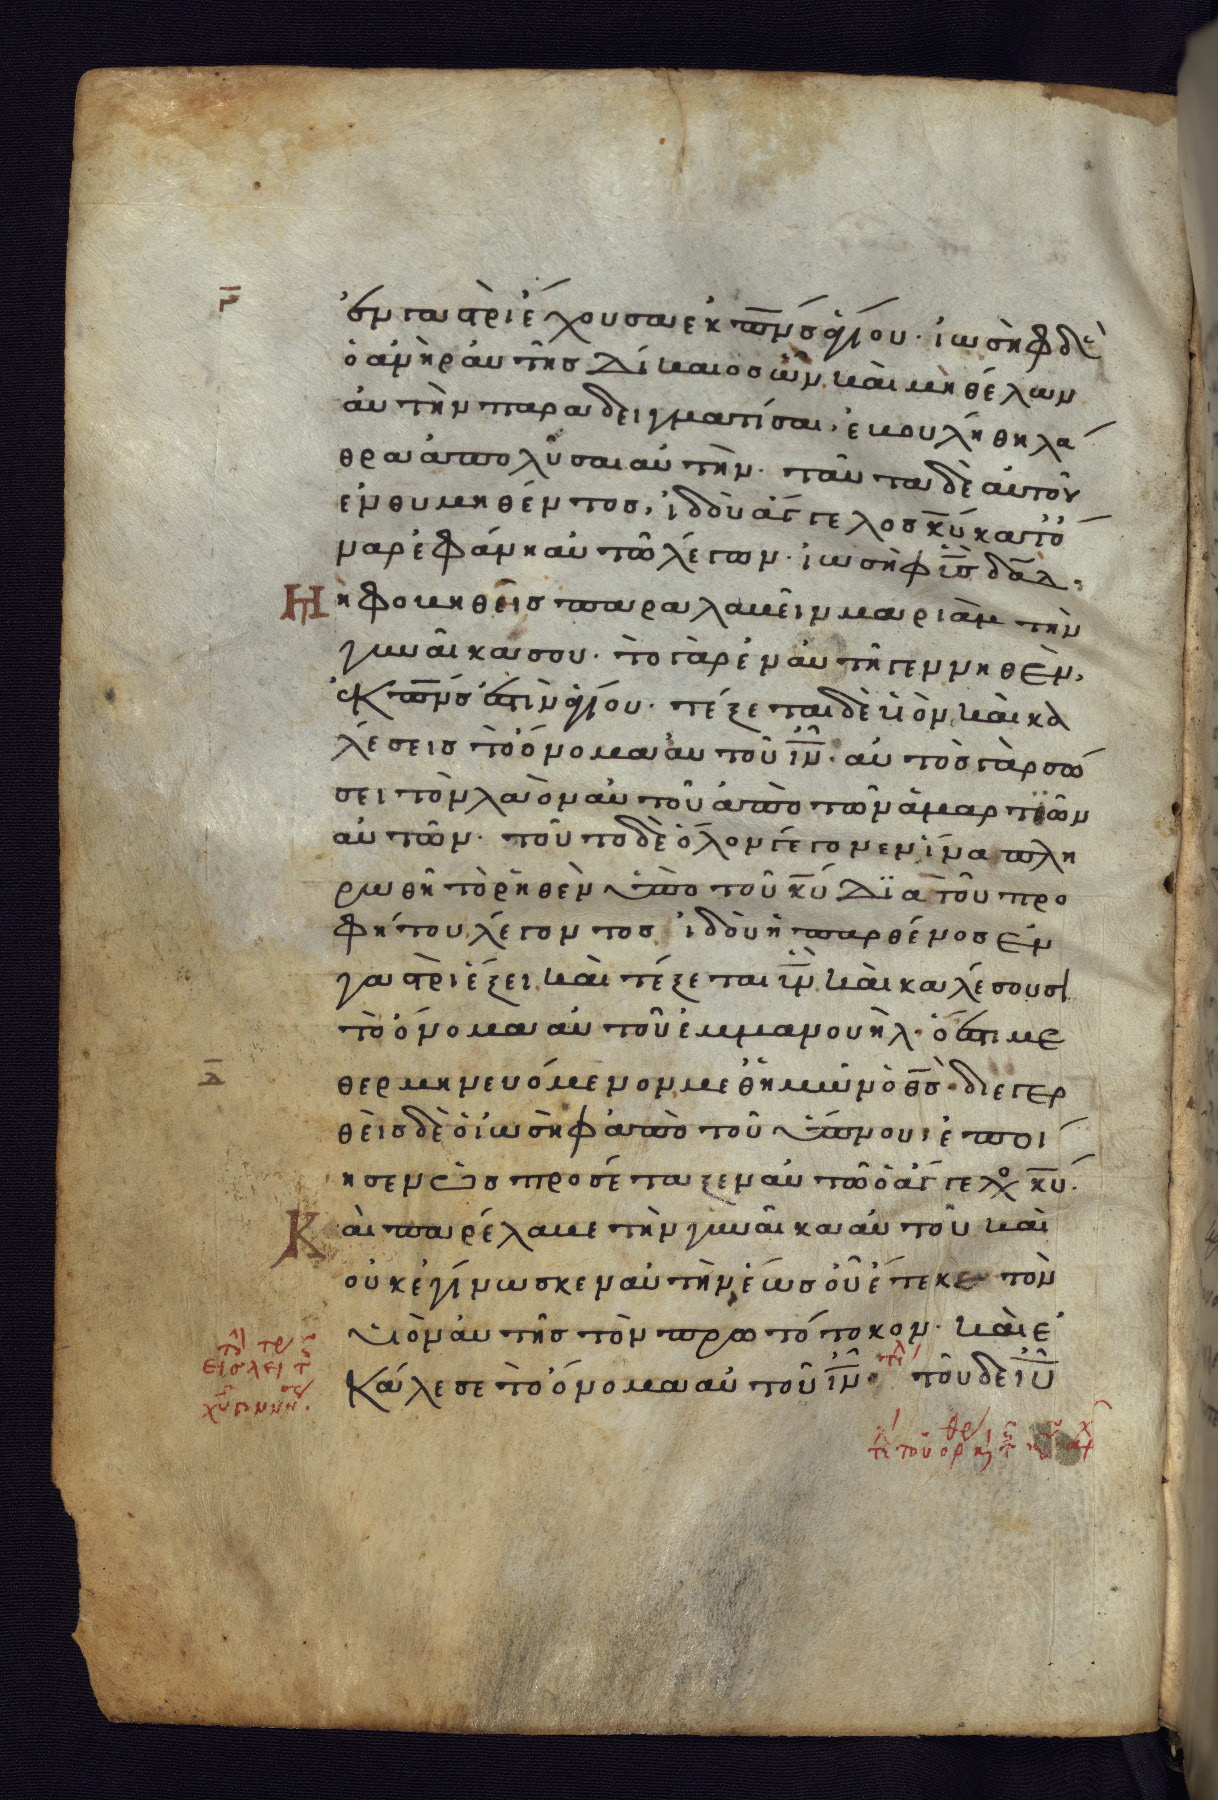 γ̅
ἐν γαστρὶ ἔχουσα ἐκ πν̅σ ἁγίου· ἰωσὴφ δὲ
ὁ ἀνὴρ ἀυτῆσ δίκαιοσ ὢν, καὶ μὴ θέλων
ἀυτὴν παραδειγματίσαι, ἐβουλήθη λά
θρα ἀπολῦσαι αὐτήν· ταῦτα δὲ ἀυτοῦ
ἐνθυμηθέντοσ, ἰδοὺ ἄγγελοσ κ̅υ κατ' ὄ
ναρ ἐφάνη αὐτῶ λέγων· ἰωσὴφ ὑι̅σ δα̅δ·
Μὴ φοβηθεῖσ παραλαβεῖν μαριὰμ τὴν
γυναῖκα σου· τὸ γὰρ ἐν αυτῆ γεννηθὲν,
ἐκ πν̅σ ἐστὶν ἁγίου· τέξεται δὲ ὑιὸν, καὶ κα
λέσεισ τὸ ὄνομα αυτοῦ ι̅ν· αὐτὸσ γὰρ σώ
σει τὸν λαὸν αὐτοῦ ἀπὸ τῶν ἁμαρτϊῶν
αὐτῶν· τοῦτο δὲ ὅλον γέγονεν ἵνα πλη
ρωθῆ τὸ ῥηθὲν ὑπὸ τοῦ κ̅υ δϊὰ τοῦ προ
φήτου λέγοντοσ ἰδοὺ ἡ παρθένοσ ἐν
γαστρὶ ἕξει καὶ τέξεται υ̅ν, καὶ καλέσουσι
τὸ ὄνομα αυτοῦ ἐμμανουήλ· ὅ ἐστι με
δ̅
θερμηνευόμενον μεθ' ἡμῶν ὁ θ̅σ· διεγερ
θεὶσ δὲ ὁ ἰωσὴφ ἀπὸ τοῦ ὕπνου, ἐποί
ησεν ὡσ προσέταξεν αὐτῶ ὁ ἄγγελοσ κ̅υ·
Καὶ παρέλαβε τὴν γυναῖκα αὐτοῦ καὶ
οὐκ ἐγίνωσκεν αὐτὴν ἑώσ οὗ ἔτεκε τὸν
ὑιὸν ἀυτῆσ τὸν πρωτότοκον· καὶ ἐ
κάλεσε τὸ ὄνομα αὐτοῦ ι̅ν· τοῦ δὲ ι̅υ